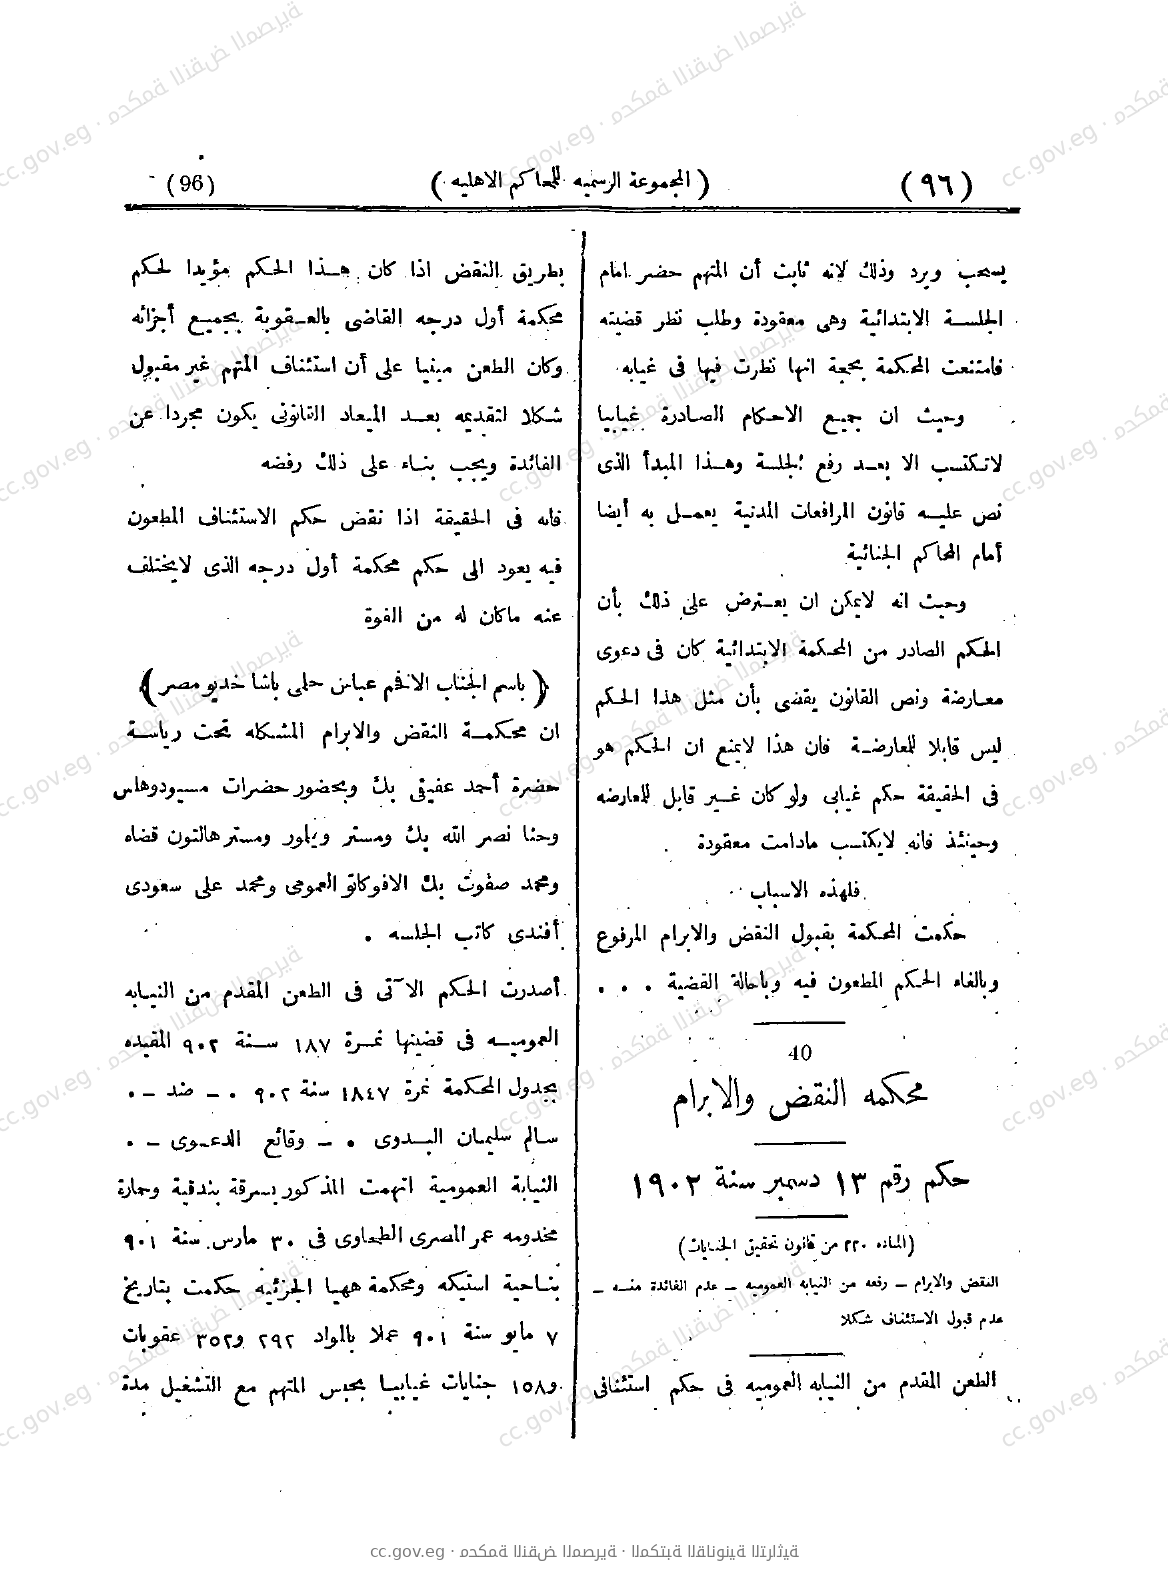 (٩٦) (المجموعة الرسميه للمحاكم الاهليه) (96)
يسحب ويرد وذلك لانه ثابت أن المتهم حضر امام
الجلســة الابتدائية وهى معقودة وطلب نظر قضيته
فامتنعت المحكمة بحجة انها نظرت فيها فى غيابه
وحيث ان جميـع الاحكام الصادرة غيابيا
لاتكتسب الا بعـد رفع الجلسة وهـذا المبدأ الذى
نص عليـه قانون المرافعات المدنية يعمـل به أيضا
أمام المحاكم الجنائية
وحيث انه لايمكن ان يعـترض على ذلك بأن
الحكم الصادر من المحكمة الابتدائية كان فى دعوى
معـارضة ونص القانون يقضى بأن مثل هذا الحكم
ليس قابلا للمعارضـة فان هذا لايمنع ان الحكم هو
فى الحقيقة حكم غيابى ولو كان غـير قابل للمعارضه
وحينئذ فانه لايكتـسب مادامت معقودة
فلهذه الاسباب
حكمت المحكمة بقبول النقض والابرام المرفوع
وبالغاء الحكم المطعون فيه وباحالة القضية . . .
40
محكمه النقض والابرام
حكم رقم ١٣ دسمبر سنة ١٩٠٢
(المـاده ٢٢٠ من قانون تحقيق الجنـايات)
النقض والابرام – رفعه من النيابه العموميه – عدم الفائدة منـه –
عدم قبول الاستئنـاف شـكلا
الطعن المقدم من النيابه العموميه فى حكم استئنافى
بطريق النقض اذا كان هـذا الحكم مؤيدا لحكم
محكمة أول درجه القاضى بالعـقوبة بجميـع أجزائه
وكان الطعن مبنيا على أن استئناف المتهم غير مقبول
شكلا لتقديمه بعـد الميعاد القانونى يكون مجردا عن
الفائدة ويجب بنـاء على ذلك رفضه
فانه فى الحقيقة اذا نقض حكم الاستئناف المطعون
فيه يعود الى حكم محكمة أول درجه الذى لايختلف
عنه ماكان له من القوة
(باسم الجناب الافخم عباس حلمى باشا خديو مصر)
ان محكمـة النقض والابرام المشكله تحت رياسـة
حضرة أحمد عفيفى بك وبحضور حضرات مسيودوهلس
وحنا نصر الله بك ومستر ويلمور ومستر هالتون قضاه
ومحمد صفوت بك الافوكاتو العمومى ومحمد على سعودى
أفندى كاتب الجلسه .
أصدرت الحكم الآتى فى الطعن المقدم من النيـابه
العموميـه فى قضيتها نمـرة ١٨٧ سـنة ٩٠٢ المقيده
بجدول المحكمة نمرة ١٨٤٧ سنة ٩٠٢ . – ضد – .
سـالم سليمـان البـدوى . – وقائع الدعـوى – .
النيابة العمومية اتهمت المذكور بسرقة بندقية وحمارة
مخدومه عمر المصرى الطحاوى فى ٣٠ مارس سنة ٩٠١
بنـاحية استيكه ومحكمة ههيا الجزئيه حكمت بتاريخ
٧ مايو سنة ٩٠١ عملا بالمواد ٢٩٢ و٣٥٢ عقوبات
و١٥٨ جنايات غيابيـا بحبس المتهم مع التشغيل مدة
cc.gov.eg · محكمة النقض المصرية · المكتبة القانونية التراثية